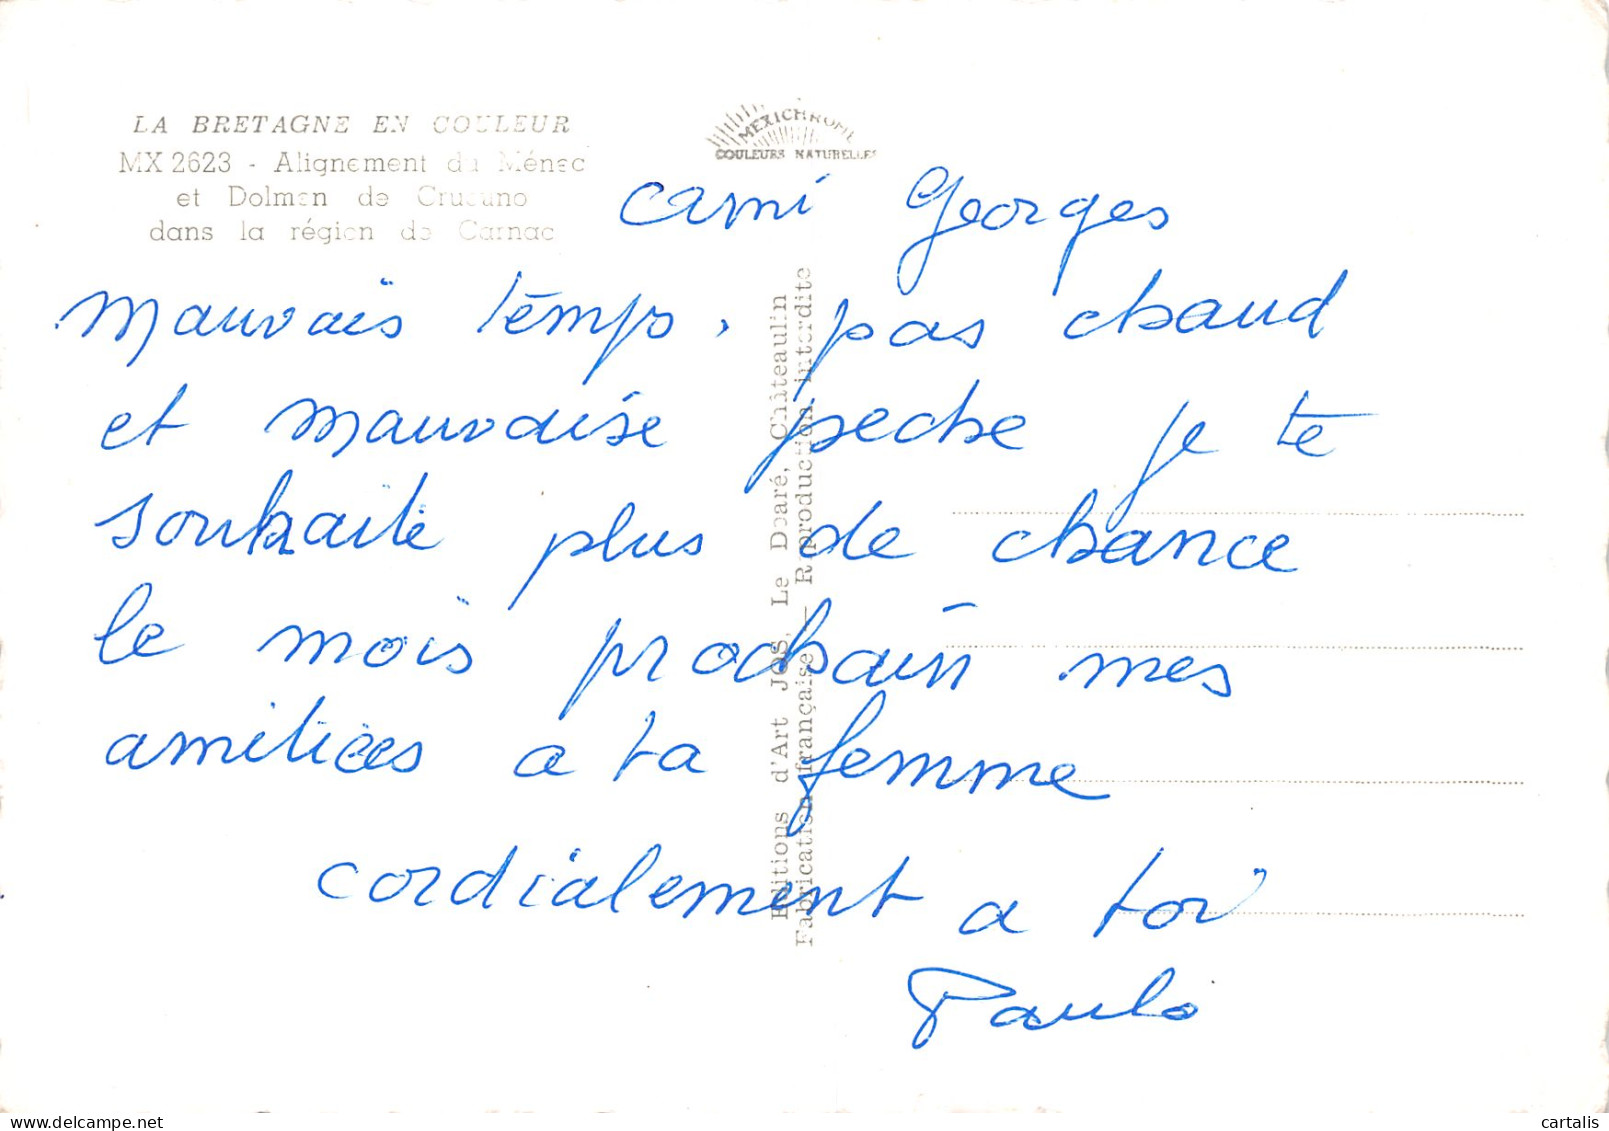 LA BRETAGNE EN COULEUR
MX 2623 - Alignement du Ménec
et Dolmen de Crucuno
dans la région de Carnac
MEXICHROME
COULEURS NATURELLES
cami Georges
mauvais temps, pas chaud
et mauvaise peche je te
souhaite plus de chance
le mois prochain mes
amitiées a ta femme
cordialement a toi
Paulo
Editions d'Art JOS Le Doaré, Châteaulin
Fabrication française — Reproduction interdite
cartalis